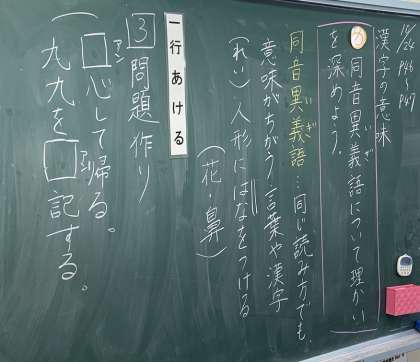 漢字の意味
め 同音異義語について理かい
を深めよう。
同音異義語…同じ読み方でも、
意味がちがう言葉や漢字
(れい)人形にはなをつける
(花・鼻)
一行あける
3 問題作り
□心して帰る。
アン
九九を□記する。
アン